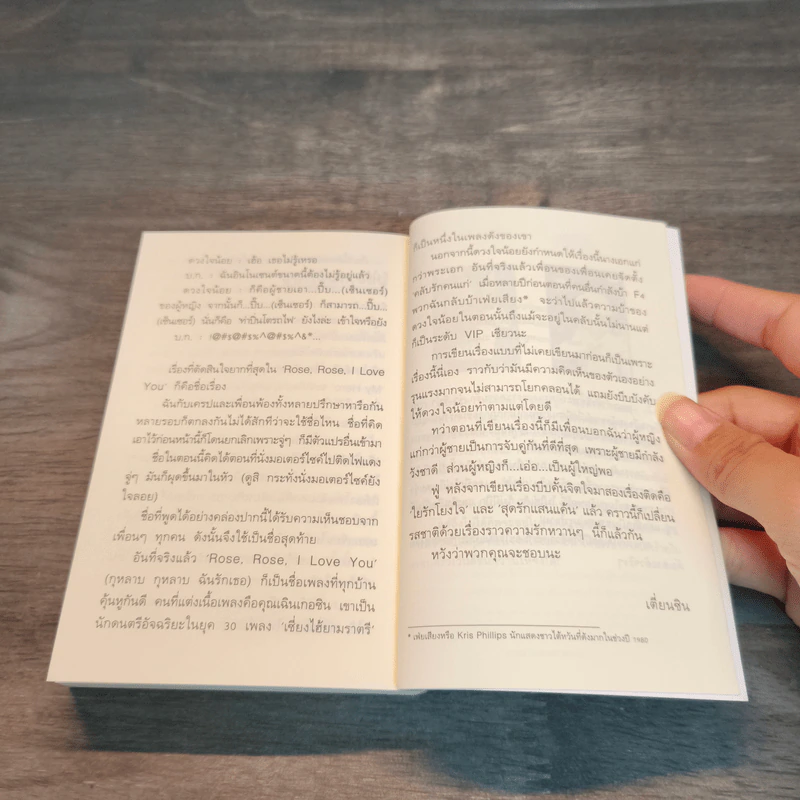 ดวงใจน้อย : เฮ้อ เธอไม่รู้เหรอ
บ.ก. : ฉันอินโนเซนต์ขนาดนี้ต้องไม่รู้อยู่แล้ว
ดวงใจน้อย : ก็คือผู้ชายเอา...ปิ๊บ...(เซ็นเซอร์)
ของผู้หญิง จากนั้นก็...ปิ๊บ...(เซ็นเซอร์) ก็สามารถ...ปิ๊บ...
(เซ็นเซอร์) นั่นก็คือ 'ท่าปั่นโคมไฟ' ยังไงล่ะ เข้าใจหรือยัง
บ.ก. : !@#$@#$%^@#$%^&*...
เรื่องที่ตัดสินใจยากที่สุดใน 'Rose, Rose, I Love
You' ก็คือชื่อเรื่อง
ฉันกับเครปและเพื่อนพ้องทั้งหลายปรึกษาหารือกัน
หลายรอบก็ตกลงกันไม่ได้สักทีว่าจะใช้ชื่อไหน ชื่อที่คิด
เอาไว้ก่อนหน้านี้ก็โดนยกเลิกเพราะจู่ๆ ก็มีตัวแปรอื่นเข้ามา
ชื่อในตอนนี้คิดได้ตอนที่นั่งมอเตอร์ไซค์ไปติดไฟแดง
จู่ๆ มันก็ผุดขึ้นมาในหัว (ดูสิ กระทั่งนั่งมอเตอร์ไซค์ยัง
ใจลอย)
ชื่อที่พูดได้อย่างคล่องปากนี้ได้รับความเห็นชอบจาก
เพื่อนๆ ทุกคน ดังนั้นจึงใช้เป็นชื่อสุดท้าย
อันที่จริงแล้ว 'Rose, Rose, I Love You'
(กุหลาบ กุหลาบ ฉันรักเธอ) ก็เป็นชื่อเพลงที่ทุกบ้าน
คุ้นหูกันดี คนที่แต่งเนื้อเพลงคือคุณเฉินเกอซิน เขาเป็น
นักดนตรีอัจฉริยะในยุค 30 เพลง 'เซี่ยงไฮ้ยามราตรี'
ก็เป็นหนึ่งในเพลงดังของเขา
นอกจากนี้ดวงใจน้อยยังกำหนดให้เรื่องนี้นางเอกแก่
กว่าพระเอก อันที่จริงแล้วเพื่อนของเพื่อนเคยจัดตั้ง
'คลับรักคนแก่' เมื่อหลายปีก่อนตอนที่คนอื่นกำลังบ้า F4
พวกฉันกลับบ้าเฟยเสียง* จะว่าไปแล้วความบ้าของ
ดวงใจน้อยในตอนนั้นถึงแม้จะอยู่ในคลับนั้นไม่นานแต่
ก็เป็นระดับ VIP เชียวนะ
การเขียนเรื่องแบบที่ไม่เคยเขียนมาก่อนก็เป็นเพราะ
เรื่องนี้นี่เอง ราวกับว่ามันมีความคิดเห็นของตัวเองอย่าง
รุนแรงมากจนไม่สามารถโยกคลอนได้ แถมยังบีบบังคับ
ให้ดวงใจน้อยทำตามแต่โดยดี
ทว่าตอนที่เขียนเรื่องนี้ก็มีเพื่อนบอกฉันว่าผู้หญิง
แก่กว่าผู้ชายเป็นการจับคู่กันที่ดีที่สุด เพราะผู้ชายมีกำลัง
วังชาดี ส่วนผู้หญิงก็...เอ่อ...เป็นผู้ใหญ่พอ
ฟู่ หลังจากเขียนเรื่องบีบคั้นจิตใจมาสองเรื่องติดคือ
'ใยรักโยงใจ' และ 'สุดรักแสนแค้น' แล้ว คราวนี้ก็เปลี่ยน
รสชาติด้วยเรื่องราวความรักหวานๆ นี้ก็แล้วกัน
หวังว่าพวกคุณจะชอบนะ
เตี่ยนซิน
* เฟยเสียงหรือ Kris Phillips นักแสดงชาวไต้หวันที่ดังมากในช่วงปี 1980